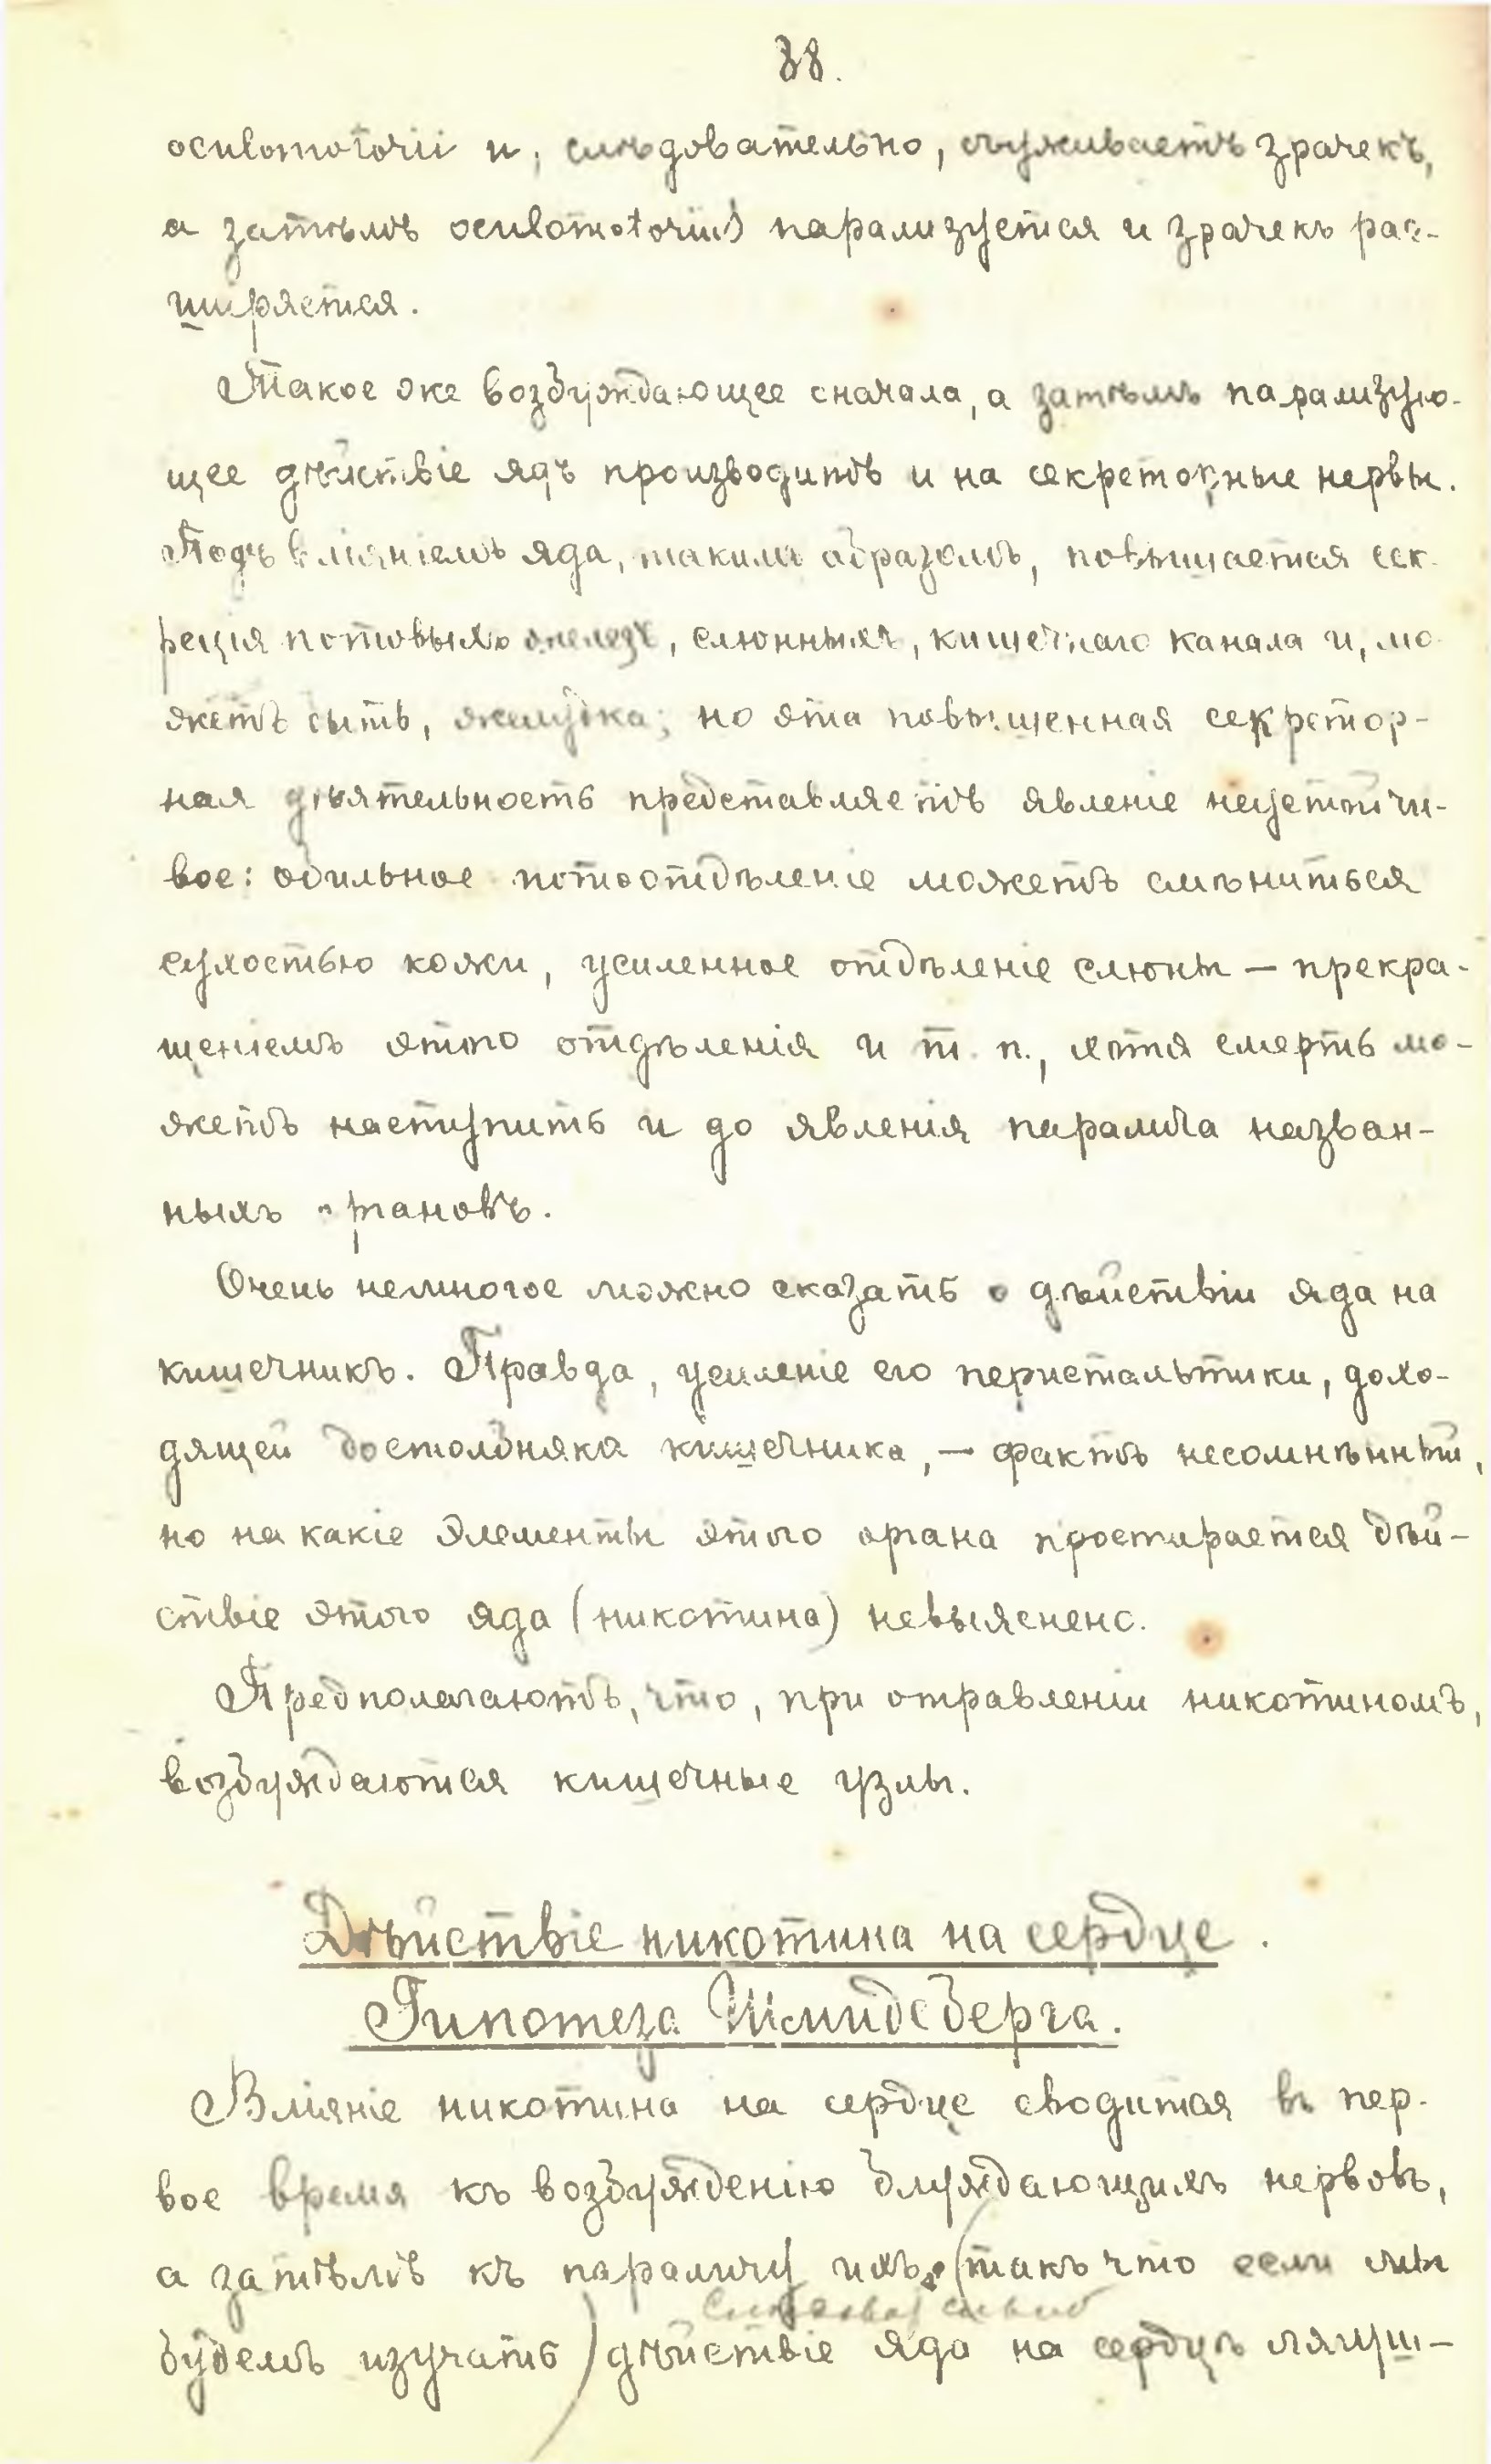 38.
oculomotorii и, слѣдовательно, съуживаетъ зрачекъ,
а затѣмъ oculomotorius парализуется и зрачекъ рас-
ширяется.
Такое же возбуждающее сначала, а затѣмъ парализую-
щее дѣйствіе ядъ производитъ и на секреторные нервы.
Подъ вліяніемъ яда, такимъ образомъ, повышается сек-
реція потовыхъ железъ, слюнныхъ, кишечнаго канала и, мо-
жетъ быть, желудка; но эта повышенная секретор-
ная дѣятельность представляетъ явленіе неустойчи-
вое: обильное потоотдѣленіе можетъ смѣниться
сухостью кожи, усиленное отдѣленіе слюны — прекра-
щеніемъ этого отдѣленія и т. п., хотя смерть мо-
жетъ наступить и до явленія паралича назван-
ныхъ органовъ.
Очень немногое можно сказать о дѣйствіи яда на
кишечникъ. Правда, усиленіе его перистальтики, дохо-
дящей до столбняка кишечника, — фактъ несомнѣнный,
но на какіе элементы этого органа простирается дѣй-
ствіе этого яда (никотина) невыяснено.
Предполагаютъ, что, при отравленіи никотиномъ,
возбуждаются кишечные узлы.
Дѣйствіе никотина на сердце.
Гипотеза Шмидеберга.
Вліяніе никотина на сердце сводится въ пер-
вое время къ возбужденію блуждающихъ нервовъ,
а затѣмъ къ параличу ихъ, (такъ что если мы
будемъ изучать) дѣйствіе яда на сердцѣ лягуш-